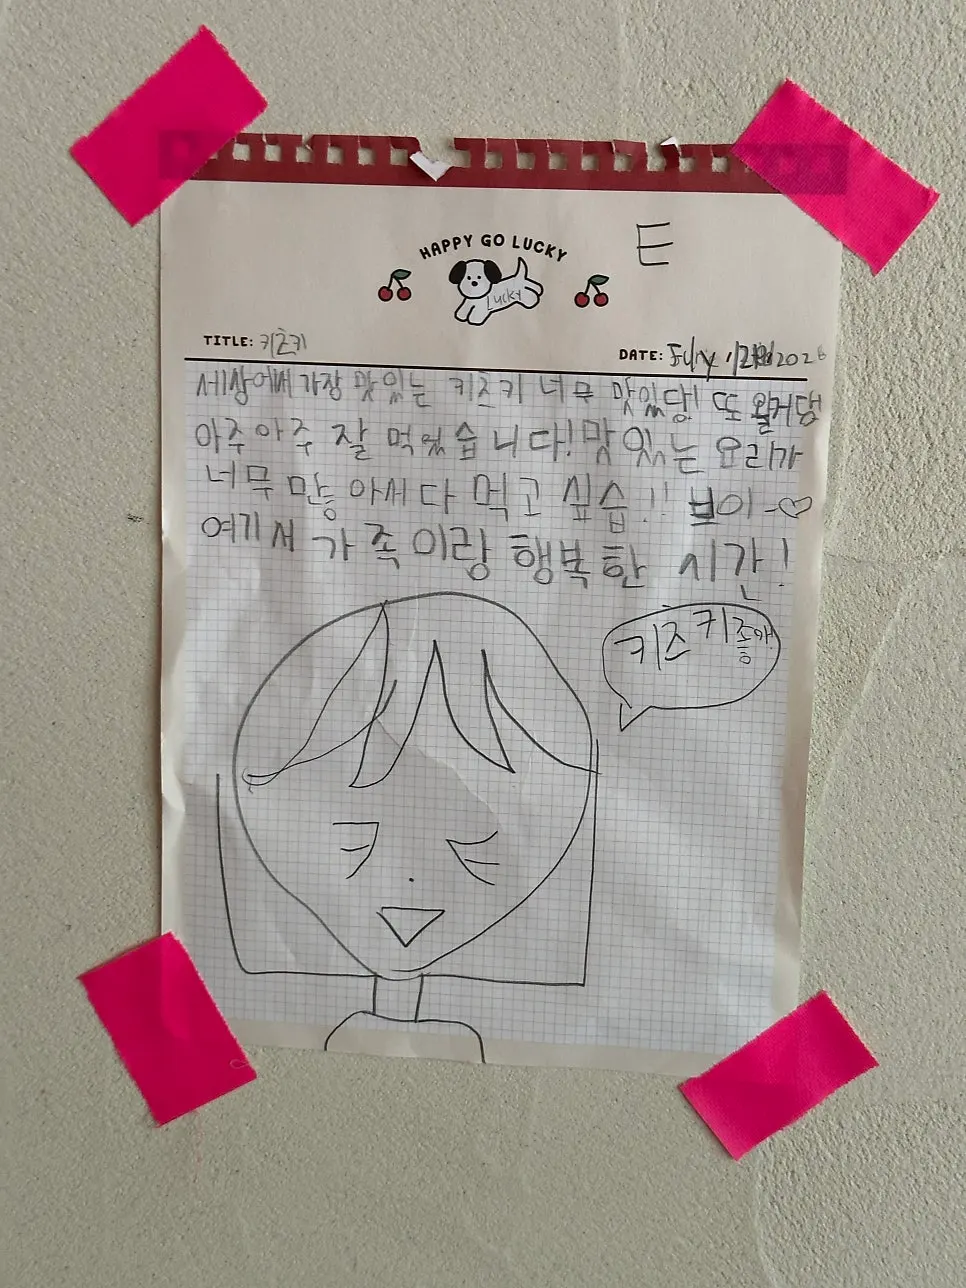 E
HAPPY GO LUCKY
Lucky
TITLE: 키즈키
DATE: 2026
세상에서 가장 맛있는 키즈키 너무 맛있당! 또 올거당
아주아주 잘 먹었습니다! 맛있는 요리가
너무 많아서 다 먹고 싶습!! 브이~♡
여기서 가족이랑 행복한 시간!
키즈키 좋아!